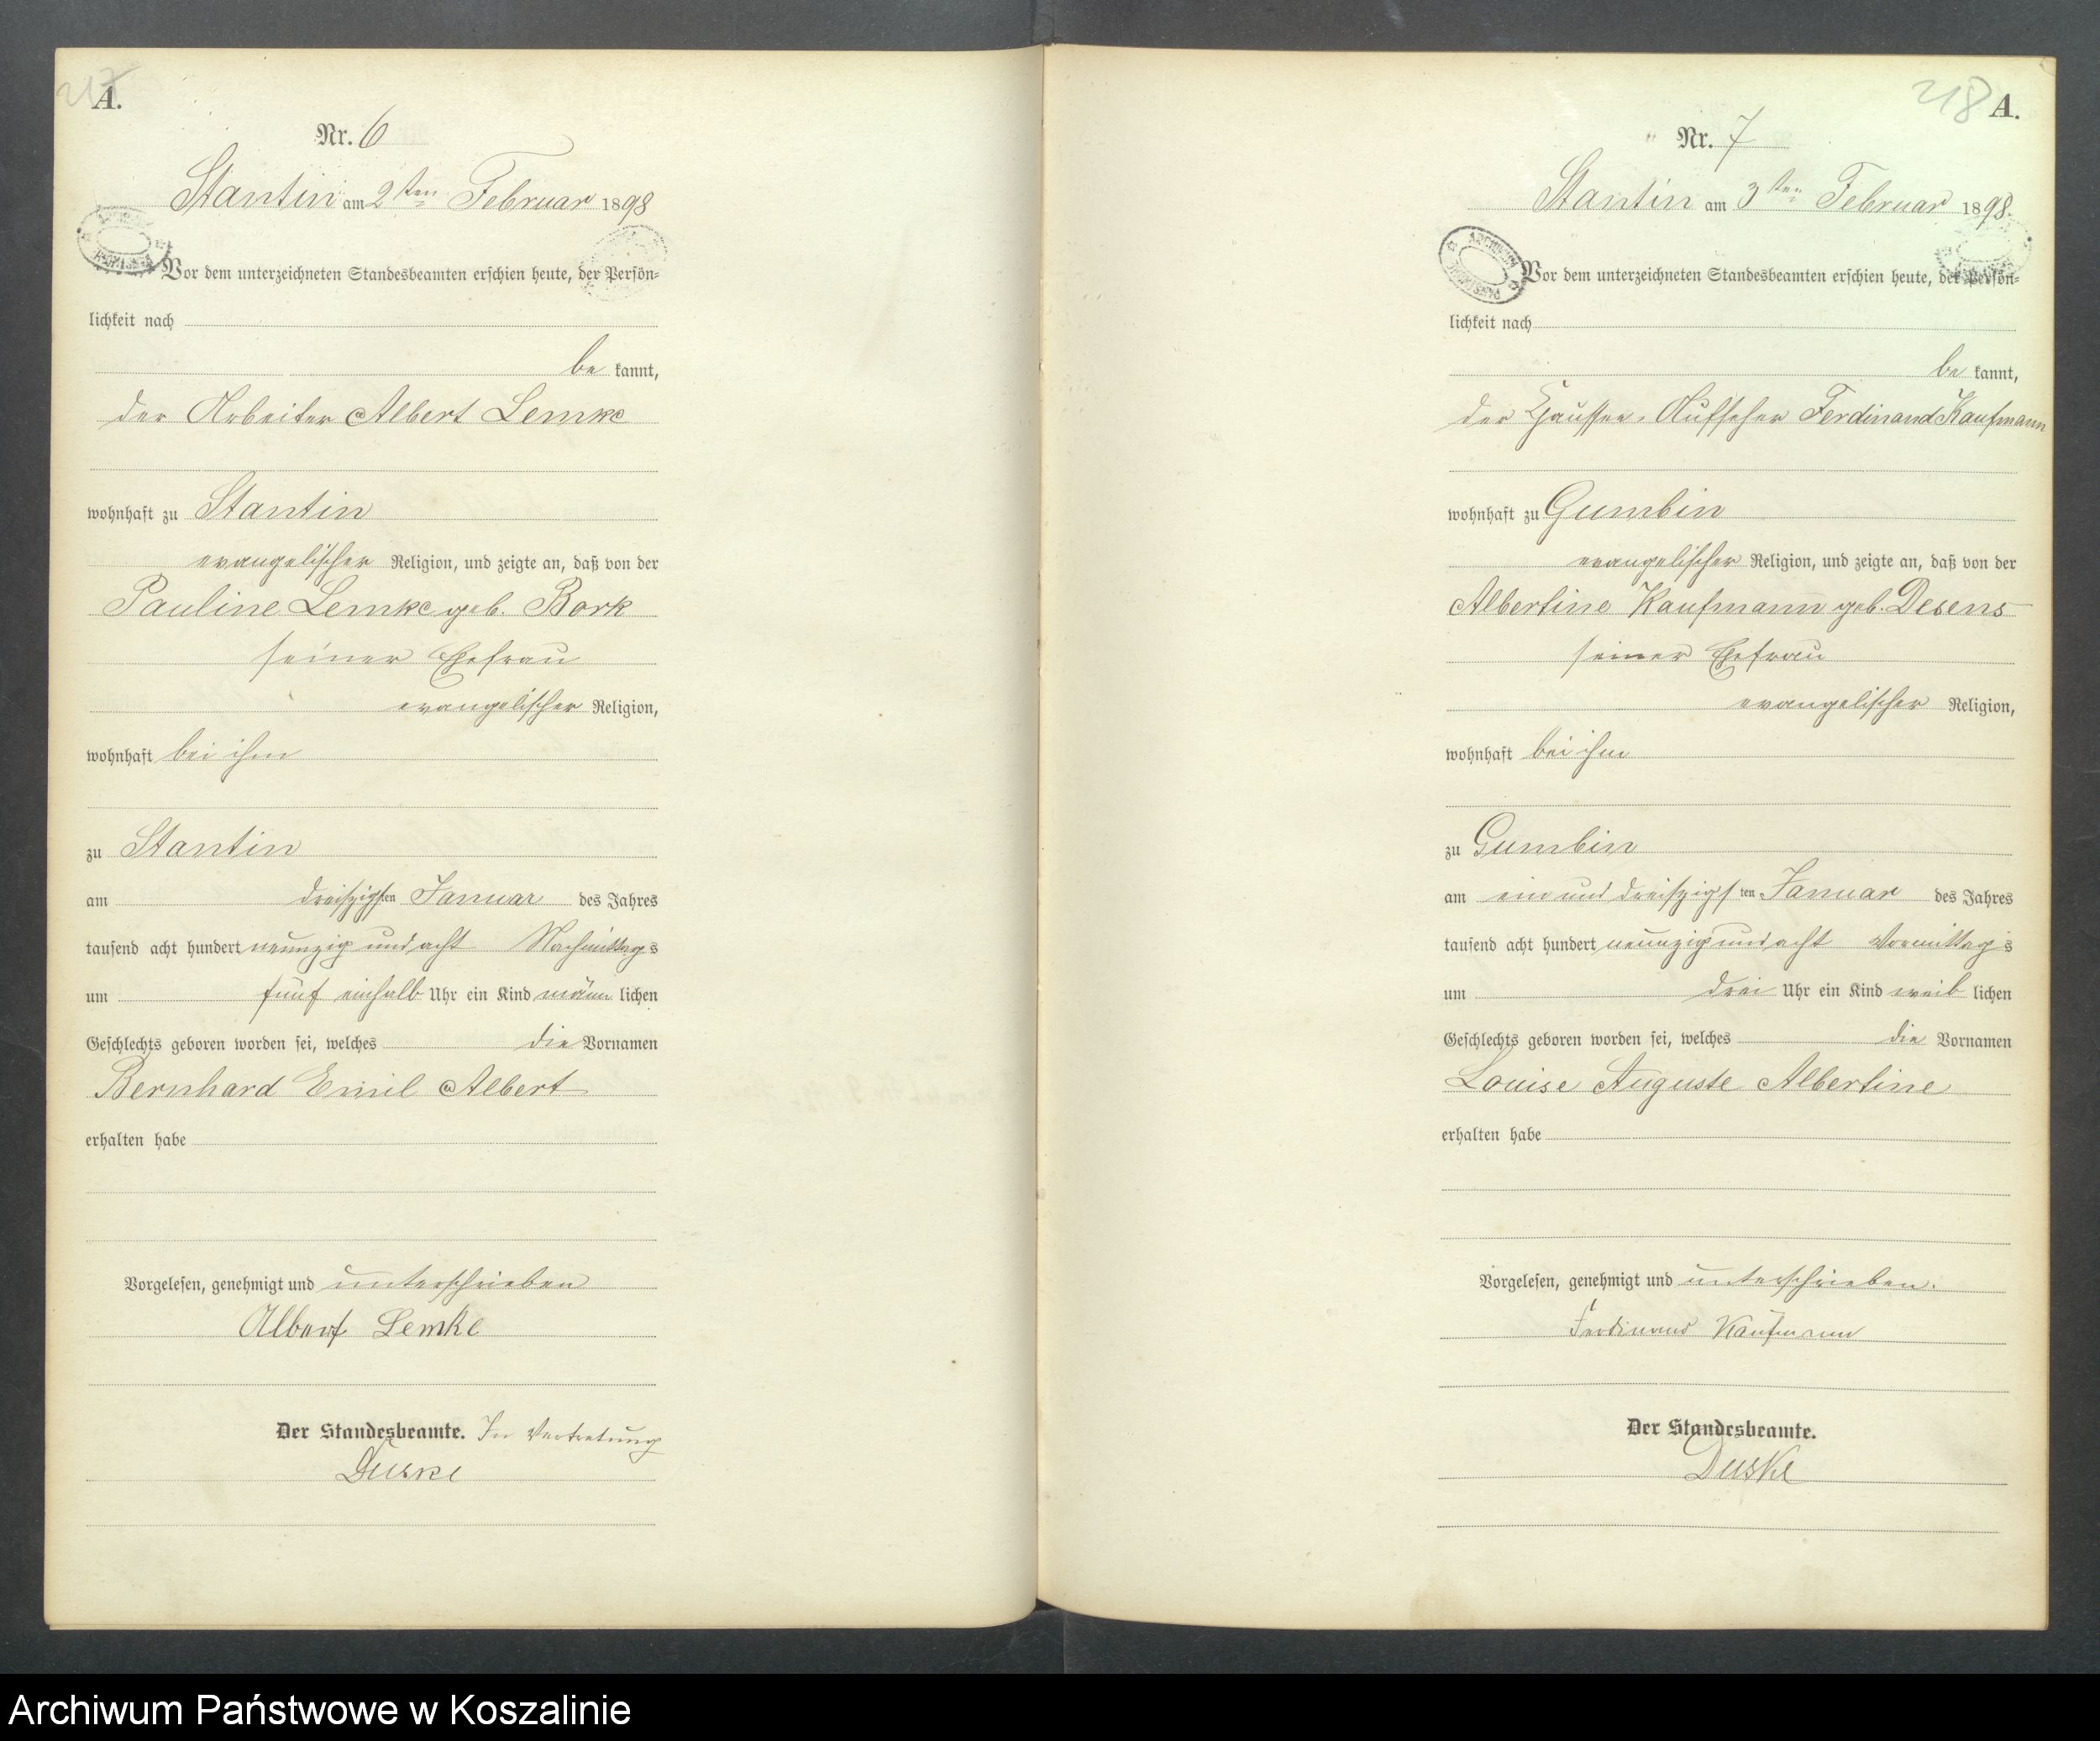 217
A.
Nr. 6
Stantin am 2ten Februar 1898
Vor dem unterzeichneten Standesbeamten erschien heute, der Persön-
lichkeit nach
be kannt,
der Arbeiter Albert Lemke
wohnhaft zu Stantin
evangelischer Religion, und zeigte an, daß von der
Pauline Lemke geb. Bork
seiner Ehefrau
evangelischer Religion,
wohnhaft bei ihm
zu Stantin
am dreiszigsten Januar des Jahres
tausend acht hundert neunzig und acht Nachmittags
um fünf einhalb Uhr ein Kind männ lichen
Geschlechts geboren worden sei, welches die Vornamen
Bernhard Emil Albert
erhalten habe
Vorgelesen, genehmigt und unterschrieben
Albert Lemke
Der Standesbeamte. In Vertretung
Duske
218 A.
Nr. 7
Stantin am 3ten Februar 1898.
Vor dem unterzeichneten Standesbeamten erschien heute, der Persön-
lichkeit nach
be kannt,
der Chaussee-Aufseher Ferdinand Kaufmann
wohnhaft zu Gumbin
evangelischer Religion, und zeigte an, daß von der
Albertine Kaufmann geb. Desens
seiner Ehefrau
evangelischer Religion,
wohnhaft bei ihm
zu Gumbin
am ein und dreiszigsten Januar des Jahres
tausend acht hundert neunzig und acht Vormittags
um drei Uhr ein Kind weib lichen
Geschlechts geboren worden sei, welches die Vornamen
Louise Auguste Albertine
erhalten habe
Vorgelesen, genehmigt und unterschrieben.
Ferdinand Kaufmann
Der Standesbeamte.
Duske
Archiwum Państwowe w Koszalinie